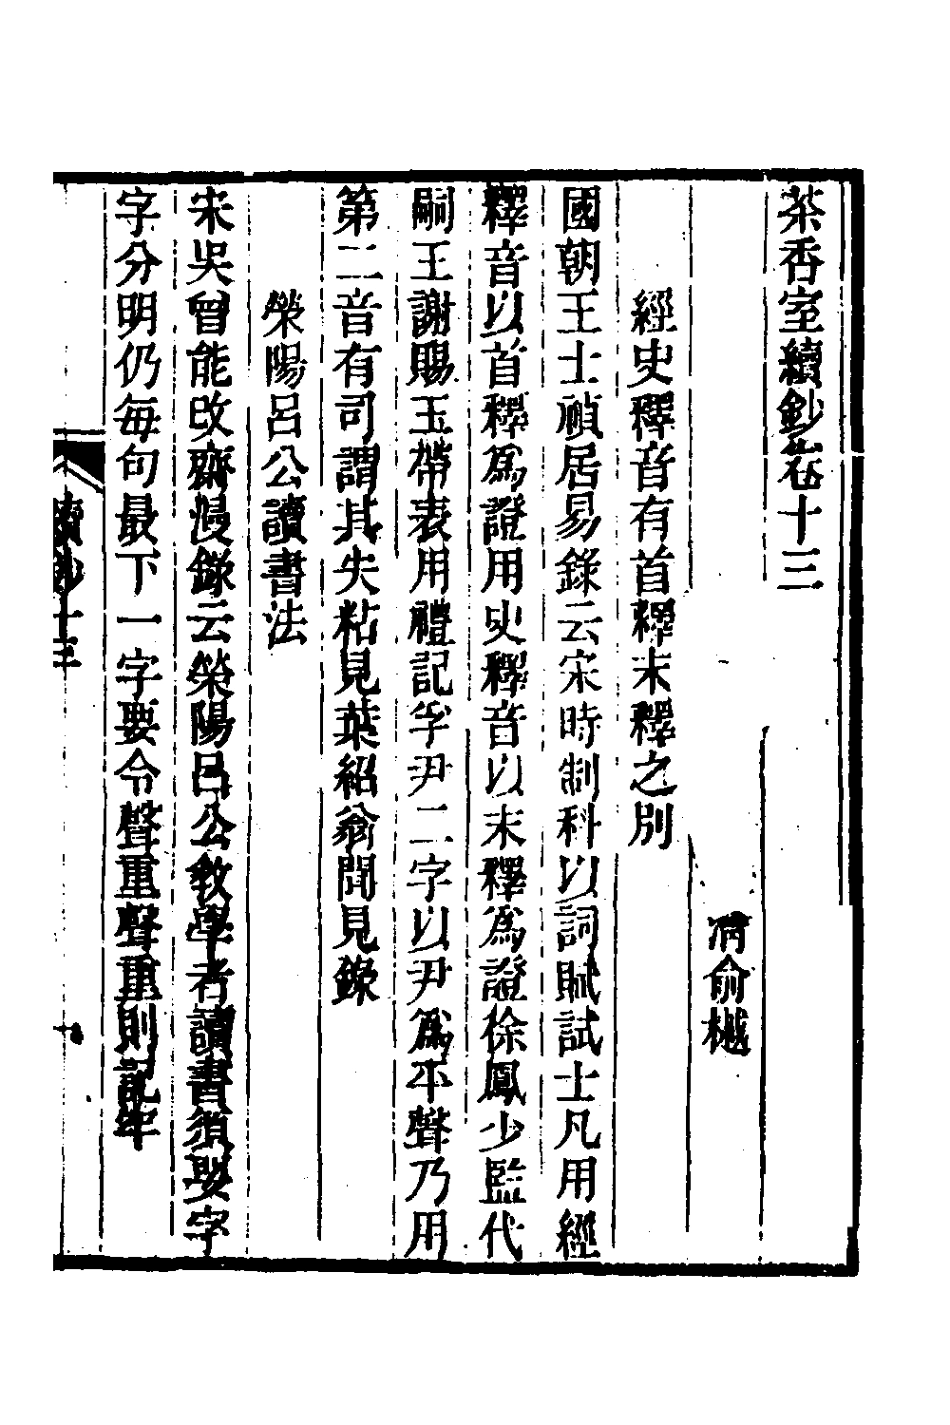 茶香室續鈔卷十三
清俞樾
經史釋音有首釋末釋之別
國朝王士禎居易錄云宋時制科以詞賦試士凡用經
釋音以首釋爲證用史釋音以末釋爲證徐鳳少監代
嗣王謝賜玉帶表用禮記孚尹二字以尹爲平聲乃用
第二音有司謂其失粘見葉紹翁聞見錄
榮陽呂公讀書法
宋吳曾能改齋漫錄云榮陽呂公敎學者讀書須要字
字分明仍每句最下一字要令聲重聲重則記牢
續鈔十三